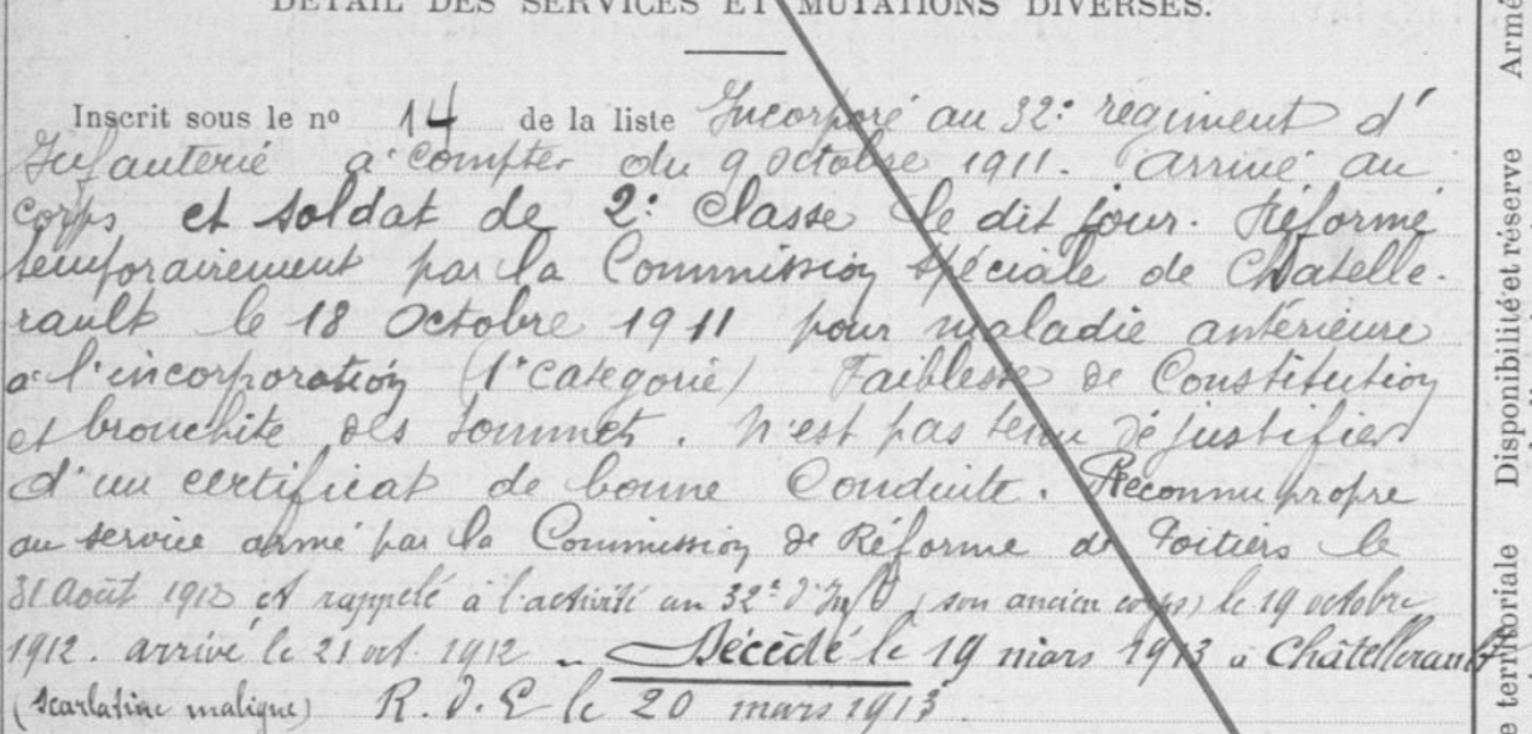 DÉTAIL DES SERVICES ET MUTATIONS DIVERSES.
Inscrit sous le nº 14 de la liste Incorporé au 32e régiment d'
Infanterie à compter du 9 octobre 1911. Arrivé au
corps et soldat de 2e classe le dit jour. Réformé
temporairement par la Commission spéciale de Chatelle-
rault le 18 Octobre 1911 pour maladie antérieure
à l'incorporation (1e categorie) Faiblesse de Constitution
et bronchite des sommets. N'est pas tenu de justifier
d'un certificat de bonne Conduite. Reconnu propre
au service armé par la Commission de Réforme de Poitiers le
31 Août 1912 et rappelé à l'activité au 32e d'Infie (son ancien corps) le 19 octobre
1912. arrivé le 21 oct. 1912 - Décédé le 19 mars 1913 à Châtellerault
(scarlatine maligne) R.D.E le 20 mars 1913.
Armé
Disponibilité et réserve
e territoriale